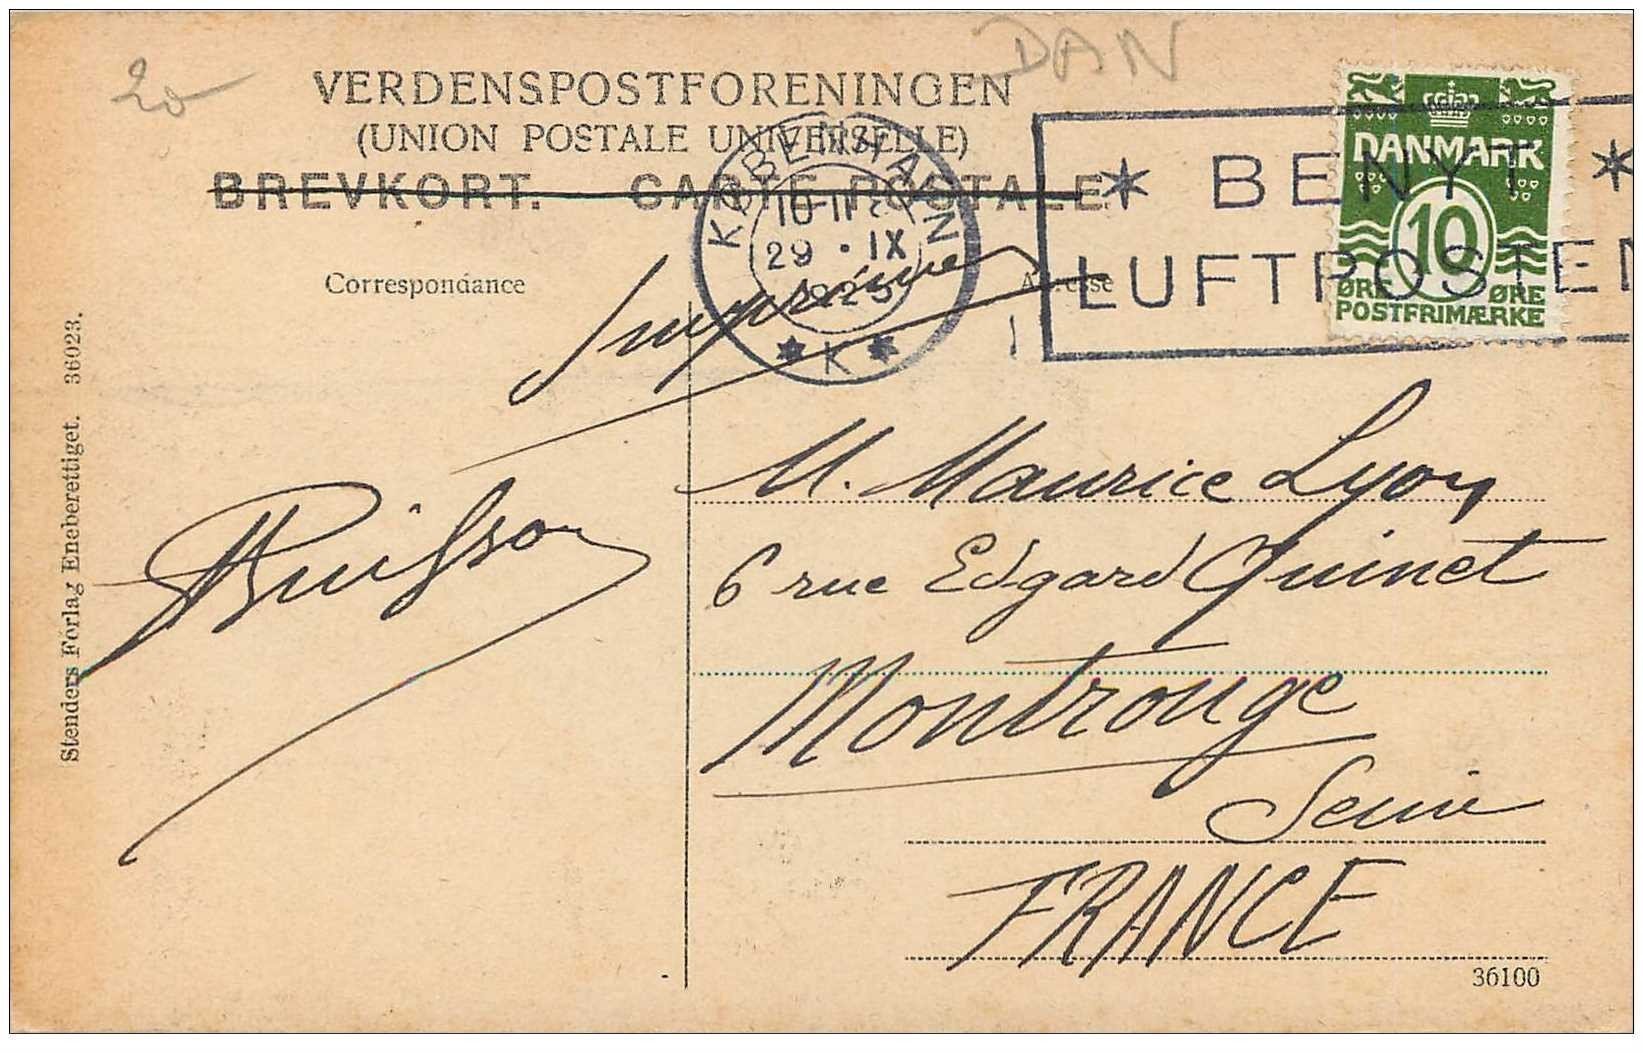 20
DAN
VERDENSPOSTFORENINGEN
(UNION POSTALE UNIVERSELLE)
BREVKORT. CARTE POSTALE
KØBENHAVN
10-11
29 · IX
1925
* K *
* BENYT *
LUFTPOSTEN
DANMARK
10
ØRE ØRE
POSTFRIMÆRKE
Correspondance
Adresse
Imprimé
Buisson
M. Maurice Lyon
6 rue Edgard Quinet
Montrouge
Seine
FRANCE
36100
Stenders Forlag Eneberettiget. 36023.